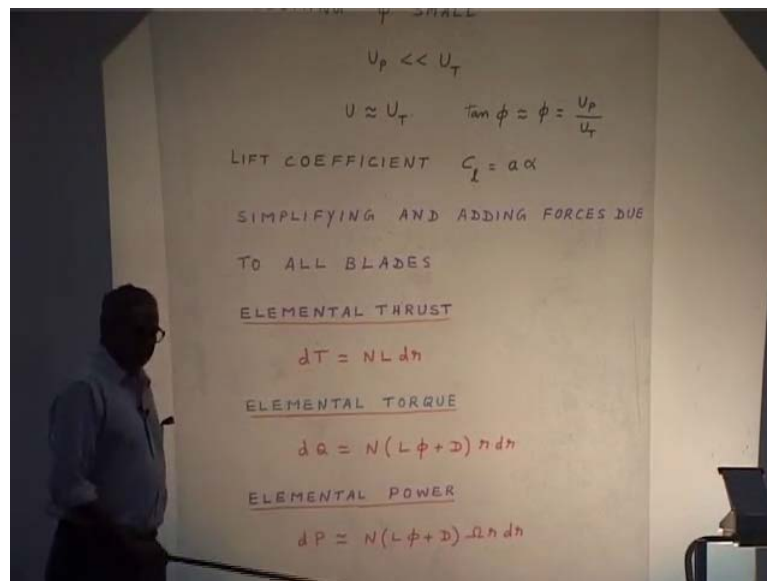 SMALL
U_P << U_T
U ≈ U_T. tan φ ≈ φ = U_P/U_T
LIFT COEFFICIENT C_l = aα
SIMPLIFYING AND ADDING FORCES DUE
TO ALL BLADES
ELEMENTAL THRUST
dT = NL dr
ELEMENTAL TORQUE
dQ = N(Lφ+D) r dr
ELEMENTAL POWER
dP ≃ N(Lφ+D) Ωr dr